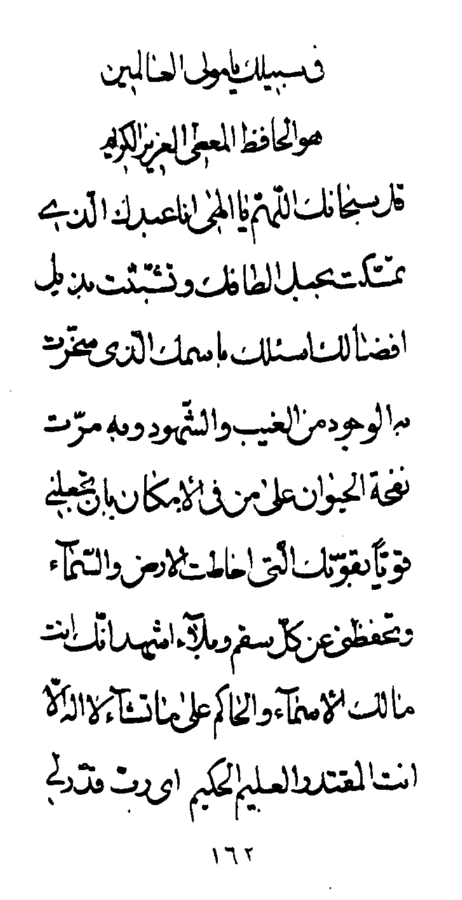 فی سبیلک یا مولی العالمین
هو الحافظ المعطی العزیز الکریم
قل سبحانک اللّهمّ یا الهی انا عبدک الّذی
تمسّکت بحبل الطافک و تشبّثت بذیل
افضالک اسئلک باسمک الّذی سخّرت
به الوجود من الغیب و الشّهود و به مرّت
نفحة الحیوان علی من فی الامکان بان تجعلنی
قویّاً بقوّتک الّتی احاطت الارض و السّمآء
و تحفظنی عن کلّ سقم و بلآء اشهد انّک انت
مالک الاسمآء و الحاکم علی ما تشآء لا اله الّا
انت المقتدر العلیم الحکیم ای ربّ قدّر لی
١٦٢